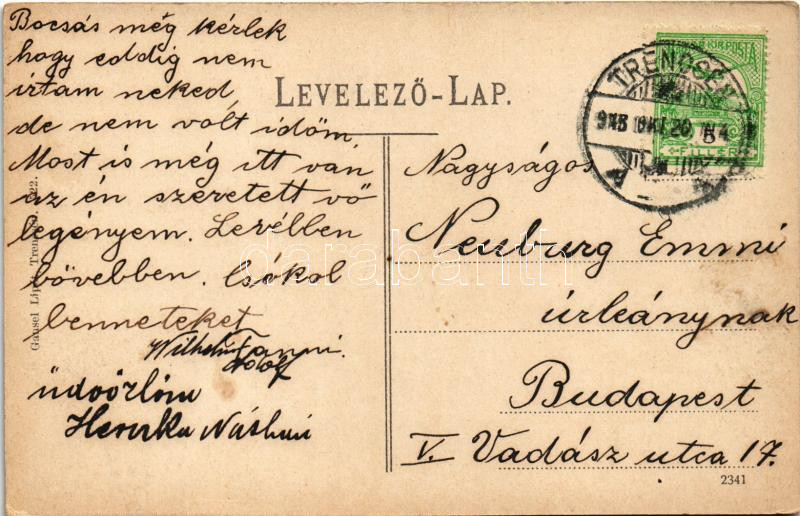 Bocsás még kérlek
hogy eddig nem
irtam neked
de nem vólt idöm.
Most is még itt van
az én szeretett vő
legényem. Levélben
bővebben. Csókol
benneteket
Wilhelm Fanni.
Adolf
üdvözlöm
LEVELEZŐ-LAP.
Nagyságos
Neuburg Emmi
úrleánynak
Budapest
V. Vadász utca 17.
2341
TRENCSÉN
913 OKT. 20.
KIR. POSTA
5
FILLÉR
Gansel Lipót, Trencsén. 1922.
darabanth